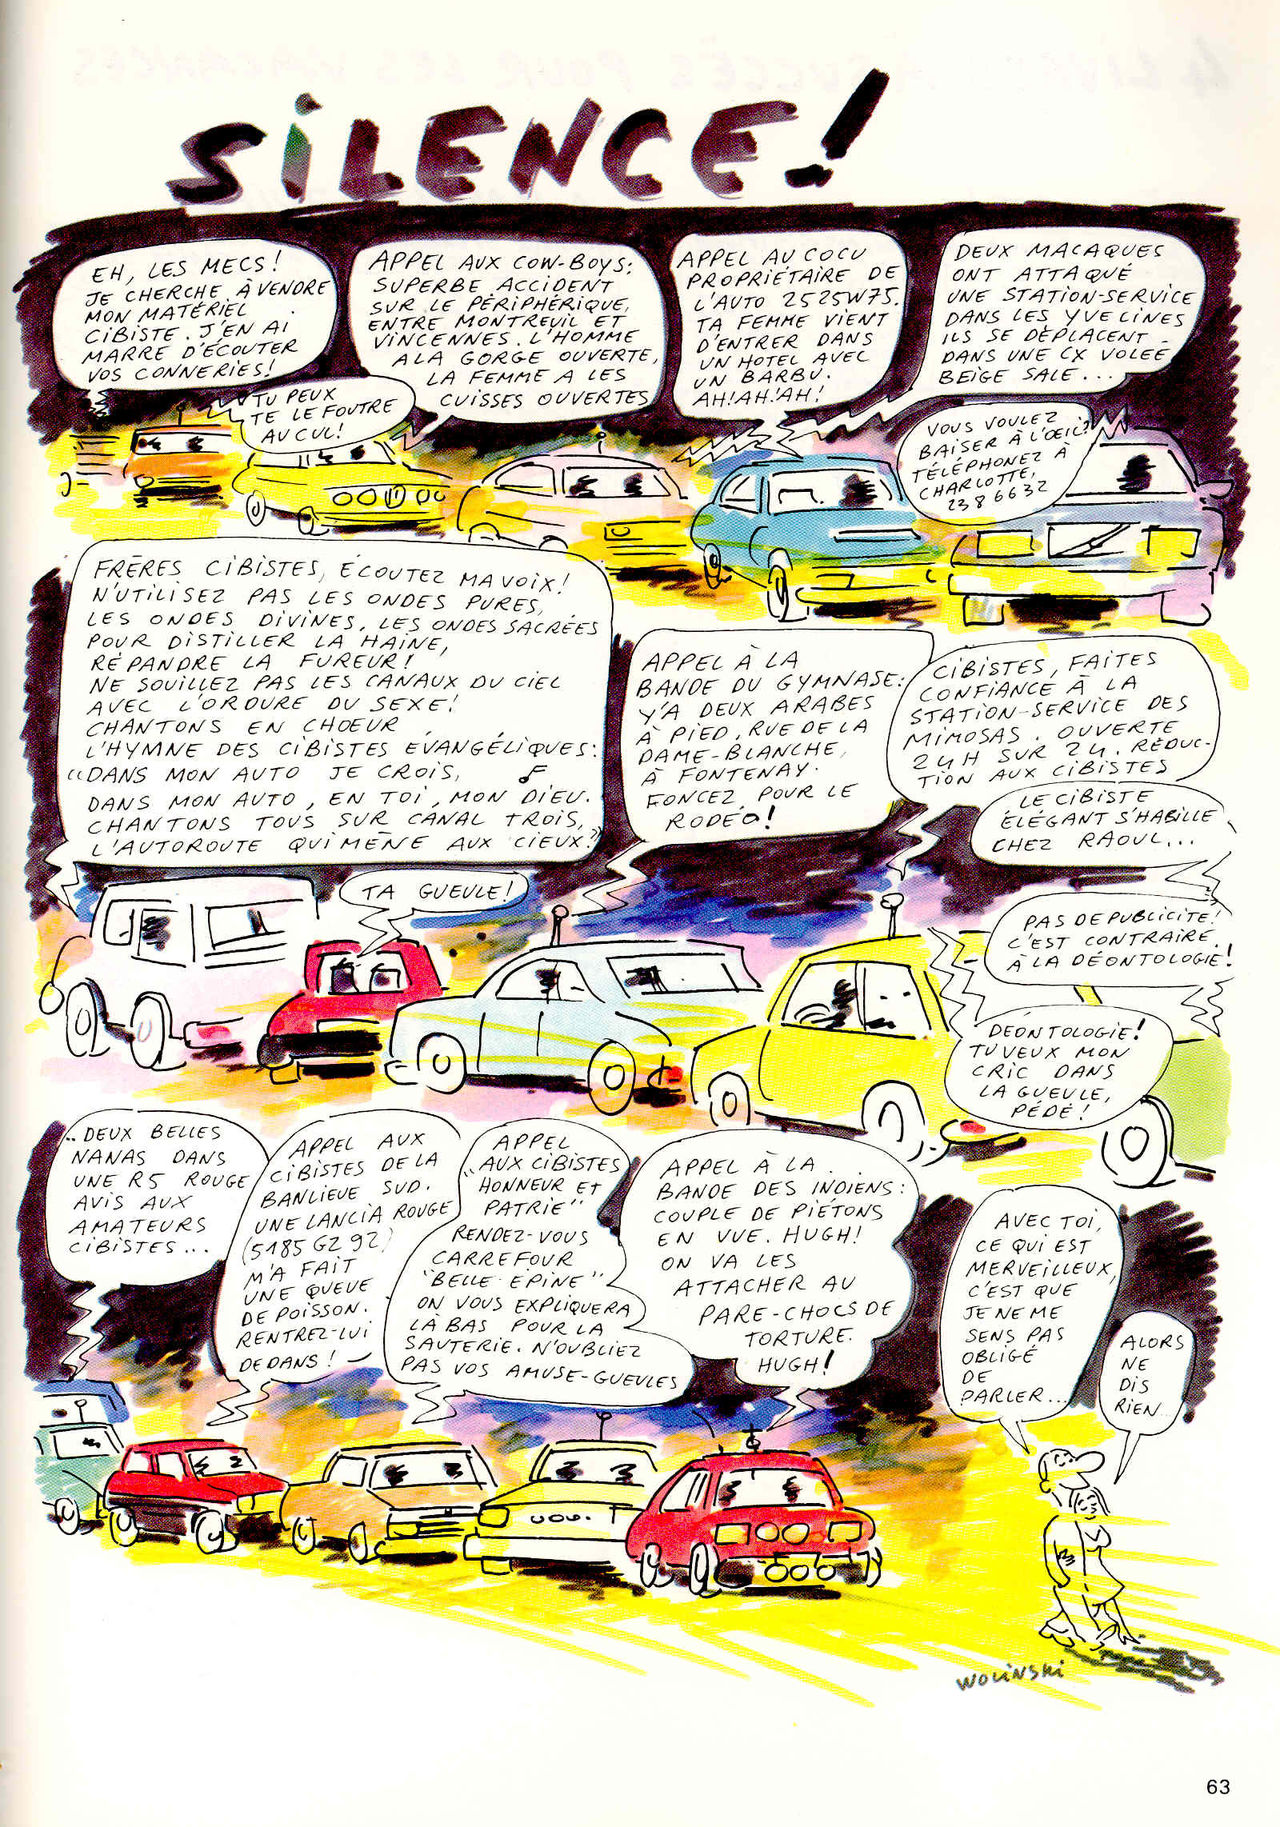 SILENCE!
EH, LES MECS!
JE CHERCHE À VENDRE
MON MATÉRIEL
CIBISTE. J'EN AI
MARRE D'ÉCOUTER
VOS CONNERIES!
TU PEUX
TE LE FOUTRE
AU CUL!
APPEL AUX COW-BOYS:
SUPERBE ACCIDENT
SUR LE PÉRIPHÉRIQUE,
ENTRE MONTREUIL ET
VINCENNES. L'HOMME
A LA GORGE OUVERTE,
LA FEMME A LES
CUISSES OUVERTES
APPEL AU COCU
PROPRIÉTAIRE DE
L'AUTO 2525W75.
TA FEMME VIENT
D'ENTRER DANS
UN HOTEL AVEC
UN BARBU.
AH!AH!AH!
DEUX MACAQUES
ONT ATTAQUÉ
UNE STATION-SERVICE
DANS LES YVELINES
ILS SE DÉPLACENT
DANS UNE CX VOLÉE
BEIGE SALE...
VOUS VOULEZ
BAISER À L'OEIL?
TÉLÉPHONEZ À
CHARLOTTE,
2386632
FRÈRES CIBISTES, ÉCOUTEZ MA VOIX!
N'UTILISEZ PAS LES ONDES PURES,
LES ONDES DIVINES, LES ONDES SACRÉES
POUR DISTILLER LA HAINE,
RÉPANDRE LA FUREUR!
NE SOUILLEZ PAS LES CANAUX DU CIEL
AVEC L'ORDURE DU SEXE!
CHANTONS EN CHOEUR
L'HYMNE DES CIBISTES ÉVANGÉLIQUES:
"DANS MON AUTO JE CROIS,
DANS MON AUTO, EN TOI, MON DIEU.
CHANTONS TOUS SUR CANAL TROIS,
L'AUTOROUTE QUI MÈNE AUX CIEUX."
TA GUEULE!
APPEL À LA
BANDE DU GYMNASE:
Y'A DEUX ARABES
À PIED, RUE DE LA
DAME-BLANCHE,
À FONTENAY.
FONCEZ POUR LE
RODÉO!
CIBISTES, FAITES
CONFIANCE À LA
STATION-SERVICE DES
MIMOSAS. OUVERTE
24H SUR 24. RÉDUC-
TION AUX CIBISTES
LE CIBISTE
ÉLÉGANT S'HABILLE
CHEZ RAOUL...
PAS DE PUBLICITÉ!
C'EST CONTRAIRE
À LA DÉONTOLOGIE!
DÉONTOLOGIE!
TU VEUX MON
CRIC DANS
LA GUEULE,
PÉDÉ!
..DEUX BELLES
NANAS DANS
UNE R5 ROUGE
AVIS AUX
AMATEURS
CIBISTES...
APPEL AUX
CIBISTES DE LA
BANLIEUE SUD.
UNE LANCIA ROUGE
(5185 GZ 92)
M'A FAIT
UNE QUEUE
DE POISSON.
RENTREZ-LUI
DEDANS!
APPEL
AUX CIBISTES
"HONNEUR ET
PATRIE"
RENDEZ-VOUS
CARREFOUR
"BELLE ÉPINE"
ON VOUS EXPLIQUERA
LÀ BAS POUR LA
SAUTERIE. N'OUBLIEZ
PAS VOS AMUSE-GUEULES
APPEL À LA
BANDE DES INDIENS:
COUPLE DE PIÉTONS
EN VUE. HUGH!
ON VA LES
ATTACHER AU
PARE-CHOCS DE
TORTURE.
HUGH!
AVEC TOI,
CE QUI EST
MERVEILLEUX,
C'EST QUE
JE NE ME
SENS PAS
OBLIGÉ
DE
PARLER...
ALORS
NE
DIS
RIEN
WOLINSKI
63